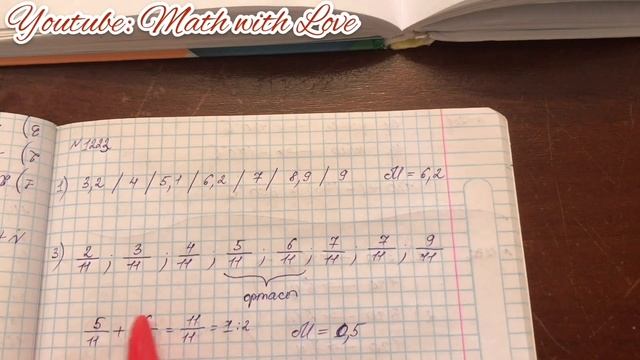 Youtube: Math with Love
N 1223
1) 3,2 / 4 / 5,1 / 6,2 / 7 / 8,9 / 9 M = 6,2
3) 2/11 ; 3/11 ; 4/11 ; 5/11 ; 6/11 ; 7/11 ; 7/11 ; 9/11
ортасы
5/11 + = 11/11 = 1:2 M = 0,5